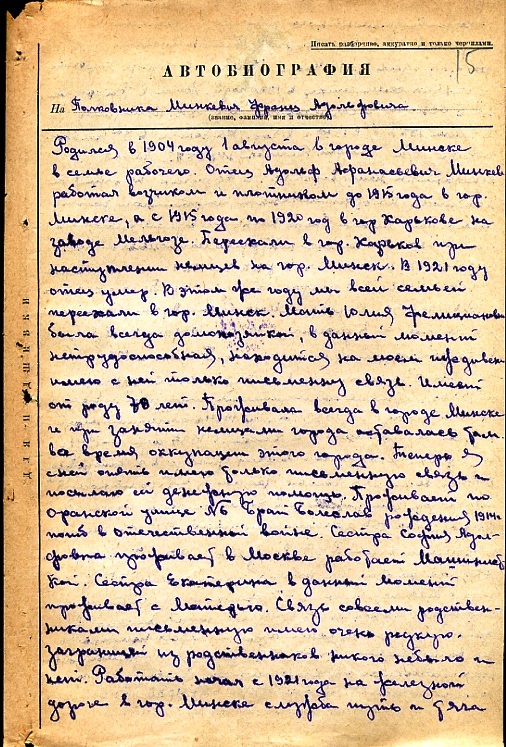 Писать разборчиво, аккуратно и только чернилами.
15
АВТОБИОГРАФИЯ
На Полковника Минкевич Франц Адольфовича
(звание, фамилия, имя и отчество)
Родился в 1904 году 1 августа в городе Минске
в семье рабочего. Отец Адольф Афанасьевич Минкев
работал возчиком и плотником до 1915 года в гор.
Минске, а с 1915 года по 1920 год в гор Харькове на
заводе Мельгозе. Переехали в гор. Харьков при
наступлении немцев на гор. Минск. В 1921 году
отец умер. В этом же году мы всей семьей
переехали в гор. Минск. Мать Юлия Феликсиановн
была всегда домохозяйкой, в данный момент
нетрудоспособная, находится на моем иждивени
имею с ней только письменную связь. Имеет
от роду 78 лет. Проживала всегда в городе Минске
и при занятии немцами города оставалась там.
во время оккупации этого города. Теперь я
с ней опять имею только письменную связь и
посылаю ей денежную помощь. Проживает по
улице №6 Брат Болеслав рождения 1914г.
погиб в отечественной войне. Сестра София Адоль-
фовна проживает в Москве работает Машинист
кой. Сестра Екатерина в данный момент
проживает с Матерью. Связь со всеми родствен-
никами письменную имею очень редкую.
заграницей из родственников никого небыло и
нет. Работать начал с 1921 года на железной
дороге в гор. Минске служба путь и тяга
ДЛЯ ПОДШИВКИ